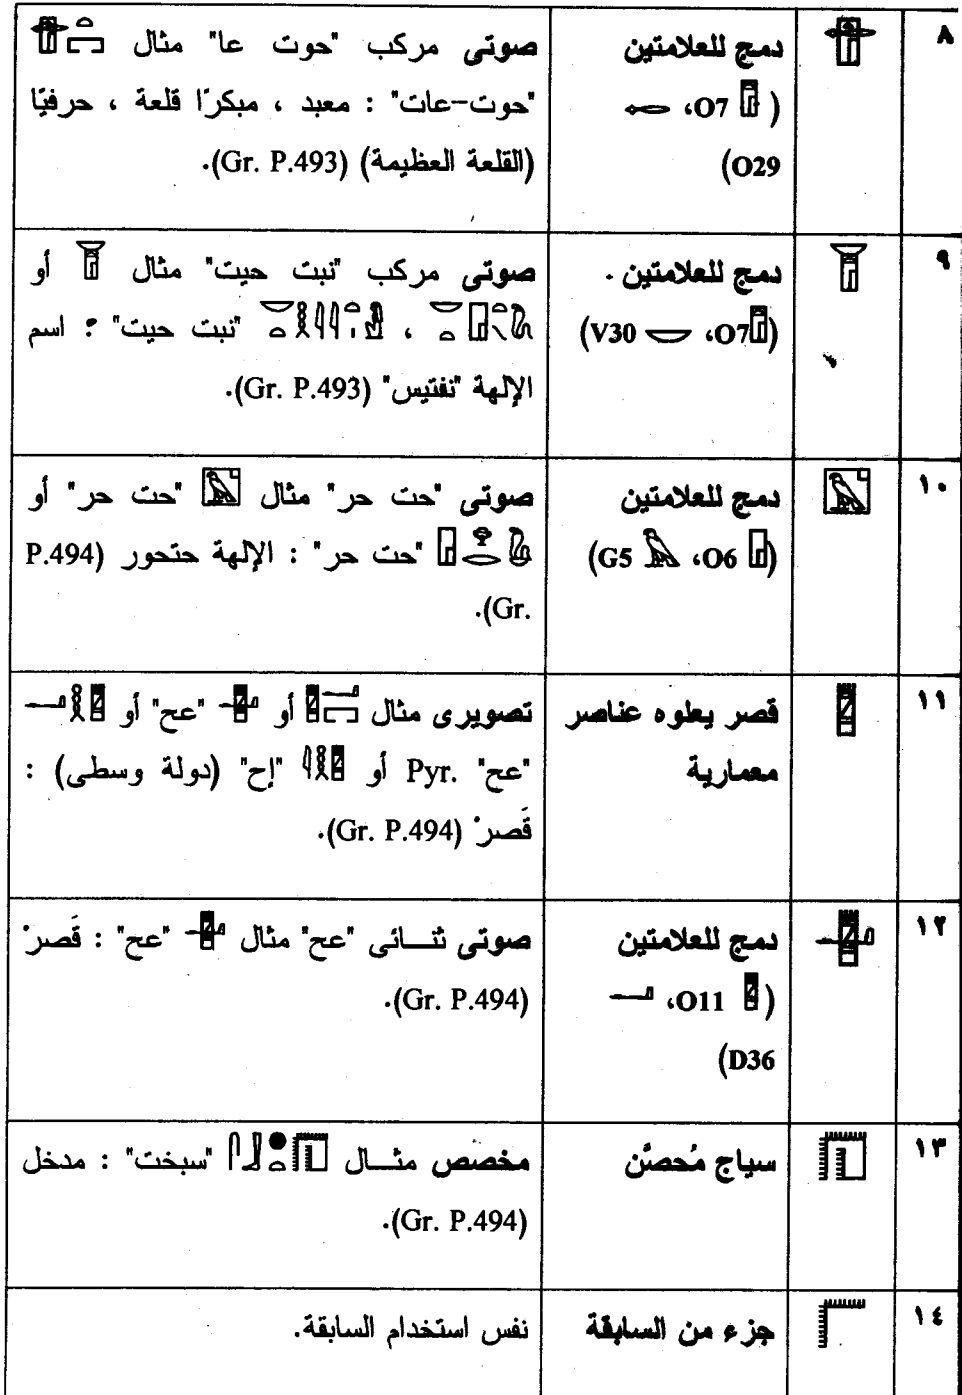 ٨ دمج للعلامتين صوتى مركب "حوت عا" مثال
(O7، "حوت-عات" : معبد ، مبكرًا قلعة ، حرفيًا
O29) (القلعة العظيمة) (Gr. P.493).
٩ دمج للعلامتين . صوتى مركب "نبت حيت" مثال أو
(O7، V30) ، "نبت حيت" : اسم
الإلهة "نفتيس" (Gr. P.493).
١٠ دمج للعلامتين صوتى "حت حر" مثال "حت حر" أو
(O6، G5) "حت حر" : الإلهة حتحور (P.494
Gr.).
١١ قصر يعلوه عناصر تصويرى مثال أو "عح" أو
معمارية "عح" Pyr. أو "إح" (دولة وسطى) :
قَصرْ (Gr. P.494).
١٢ دمج للعلامتين صوتى ثنـائى "عح" مثال "عح" : قَصرْ
(O11، (Gr. P.494).
D36)
١٣ سياج مُحصَّن مخصص مثـال "سبخت" : مدخل
(Gr. P.494).
١٤ جزء من السابقة نفس استخدام السابقة.